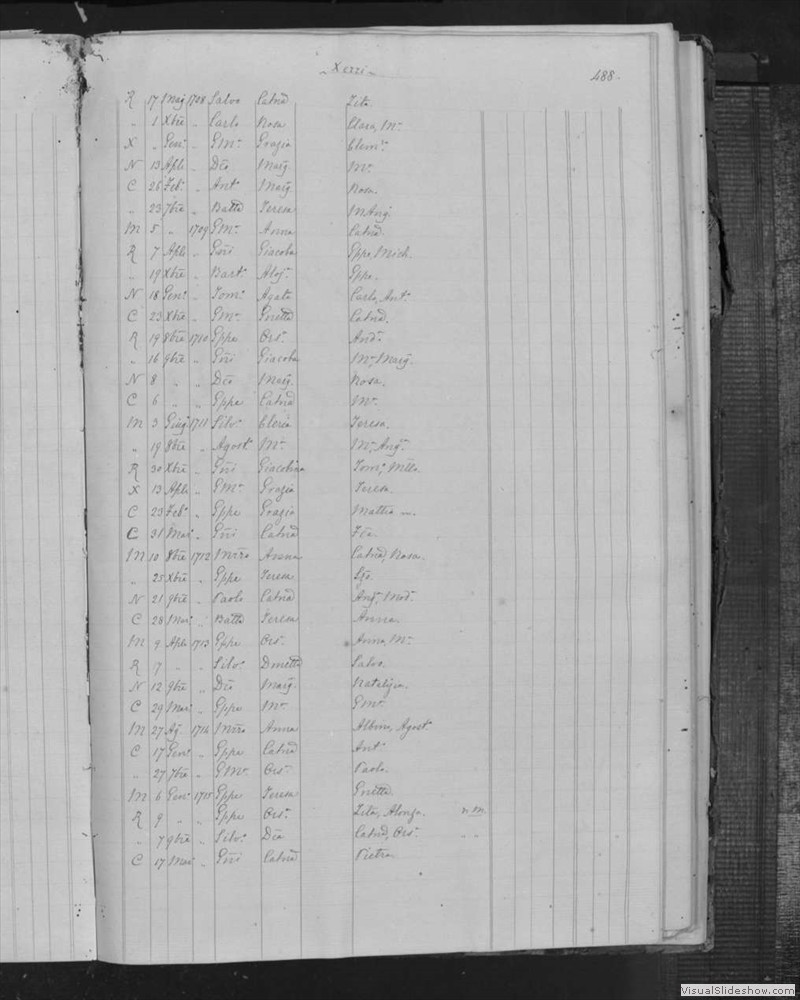 Xerri
488.
R 17 Maj 1708 Salvo Catnd Zita
" 1 Xbre " Carlo Rosa Clara, Mª
X " Genº " GMª Grazia Clemª
N 13 Aple " Dco Marg. Mª
C 26 Febº " Antº Marg. Rosa.
" 23 7bre " Batta Teresa MAng.
M 5 " 1709 GMª Anna Catnd.
R 7 Aple " Gni Giacoba Gppe, Mich.
" 19 Xbre " Bartº Aloj. Gppe.
N 18 Genº " Tomº Agata Carlo, Antº
C 23 Xbre " GMª Gnetta Catnd.
R 19 8bre 1710 Gppe Orsª Andª
" 16 9bre " Gni Giacoba Mª, Marg.
N 8 " " Dco Marg. Rosa.
C 6 " " Gppe Catnd Mª
M 3 Giug 1711 Silvº Cleria Teresa.
" 19 8bre " Agostº Mª Mª, Angª
R 30 Xbre " Gni Giacobina Tomª, Mtta
X 13 Aple " GMª Grazia Teresa.
C 23 Febº " Gppe Grazia Mattia
C 31 Mar. " Gni Catnd
M 10 8bre 1712 Mzro Anna Catnd, Rosa.
" 25 Xbre " Gppe Teresa
N 21 9bre " Paolo Catnd Angª, Modª
C 28 Mar. " Batta Teresa Anna.
M 9 Aple 1713 Gppe Orsª Anna, Mª
R 7 " " Silvº Dnetta Salvo.
N 12 9bre " Dco Marg. Natalizia.
C 29 Mar. " Gppe Mª GMª
M 27 Ag. 1714 Mzro Anna Albina, Agostª
C 17 Genº " Gppe Catnd Antº
" 27 7bre " GMª Orsª Paolo.
M 6 Genº 1715 Gppe Teresa Gnetta
R 9 " " Gppe Orsª Zita, Alonza. n.m.
" 7 9bre " Silvº Dca Catnd, Orsª " "
C 17 Mar. " Gni Catnd Pietro
VisualSlideshow.com